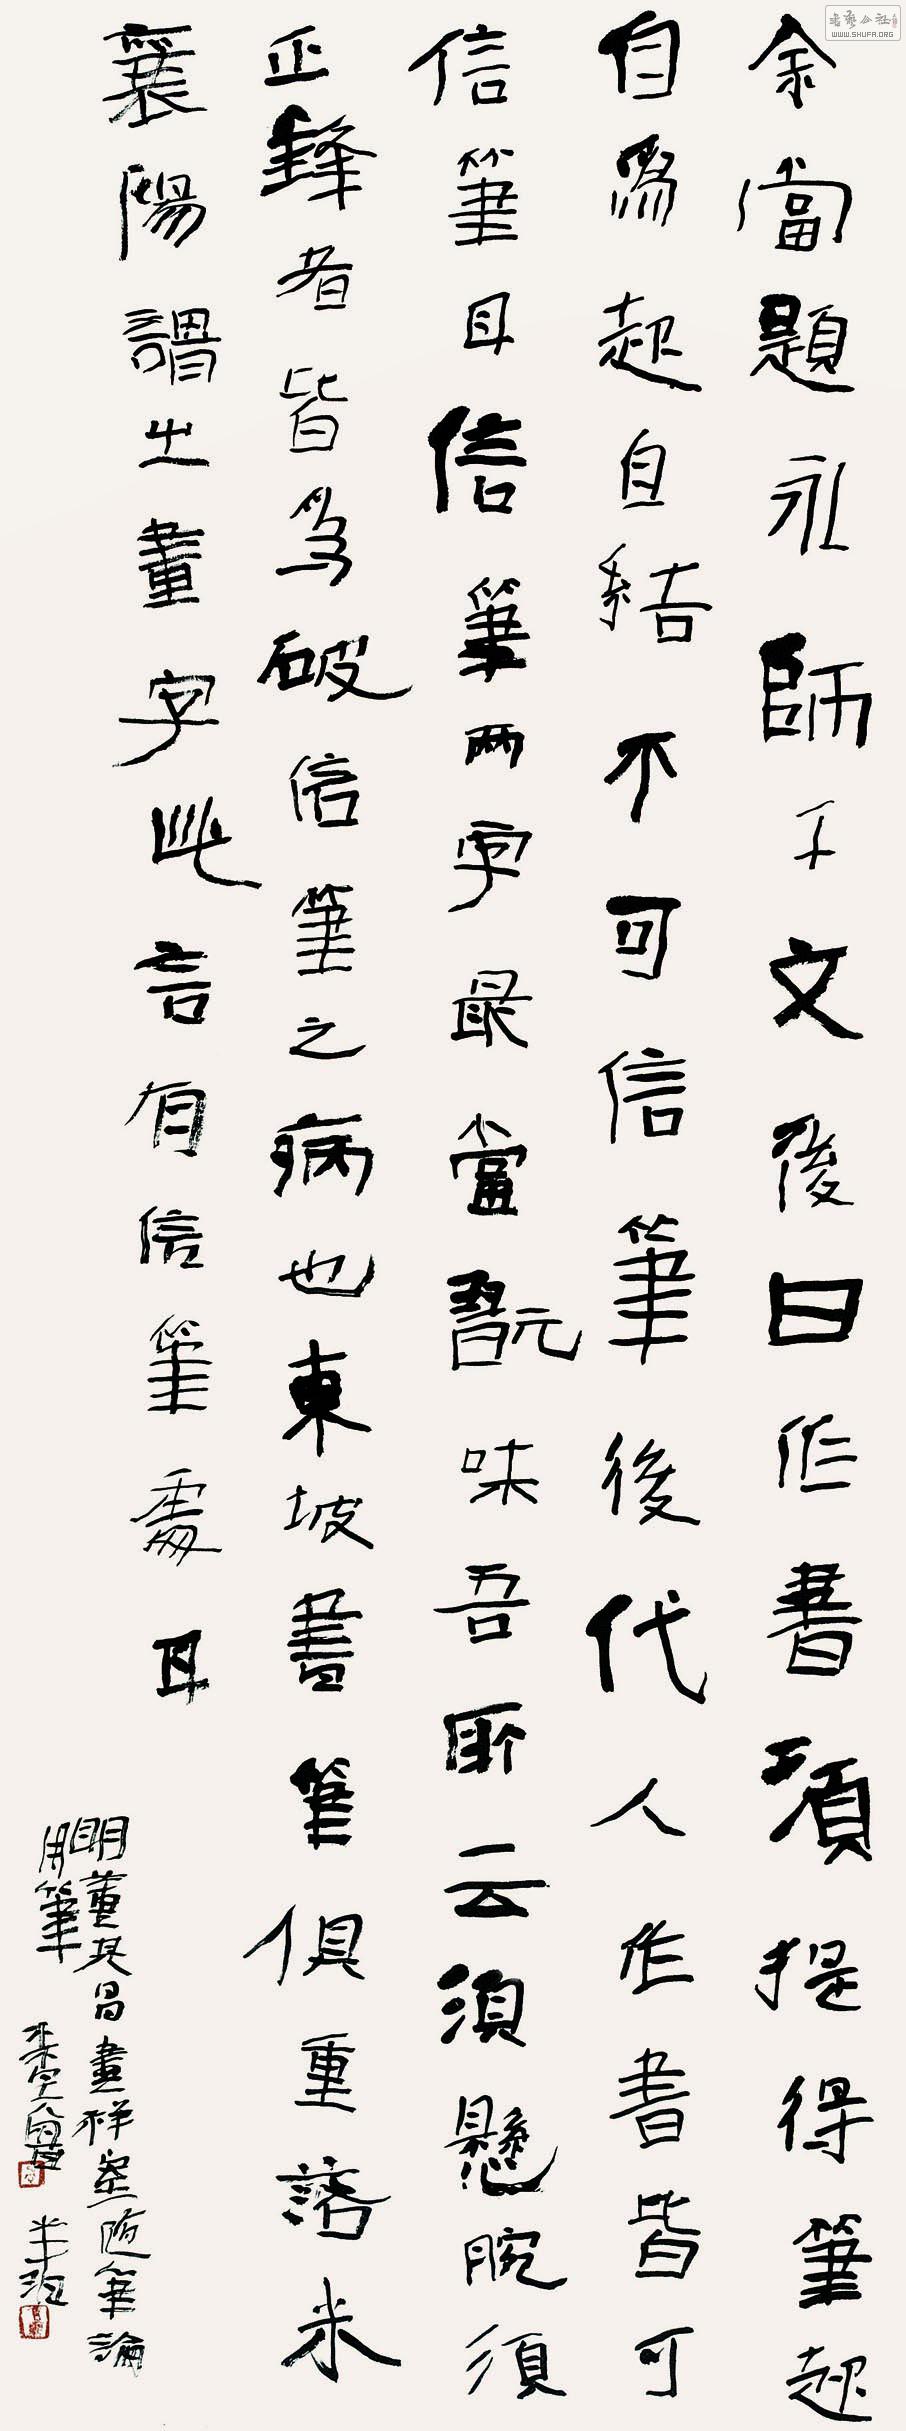 余當題永師千文後曰作書須提得筆起
自為起自結不可信筆後代人作書皆可
信筆耳信筆兩字最當翫味吾所云須懸腕須
正鋒者皆為破信筆之病也東坡書筆俱重落米
襄陽謂之畫字此言有信筆處耳
明董其昌畫禪室隨筆論
用筆
WWW.SHUFA.ORG